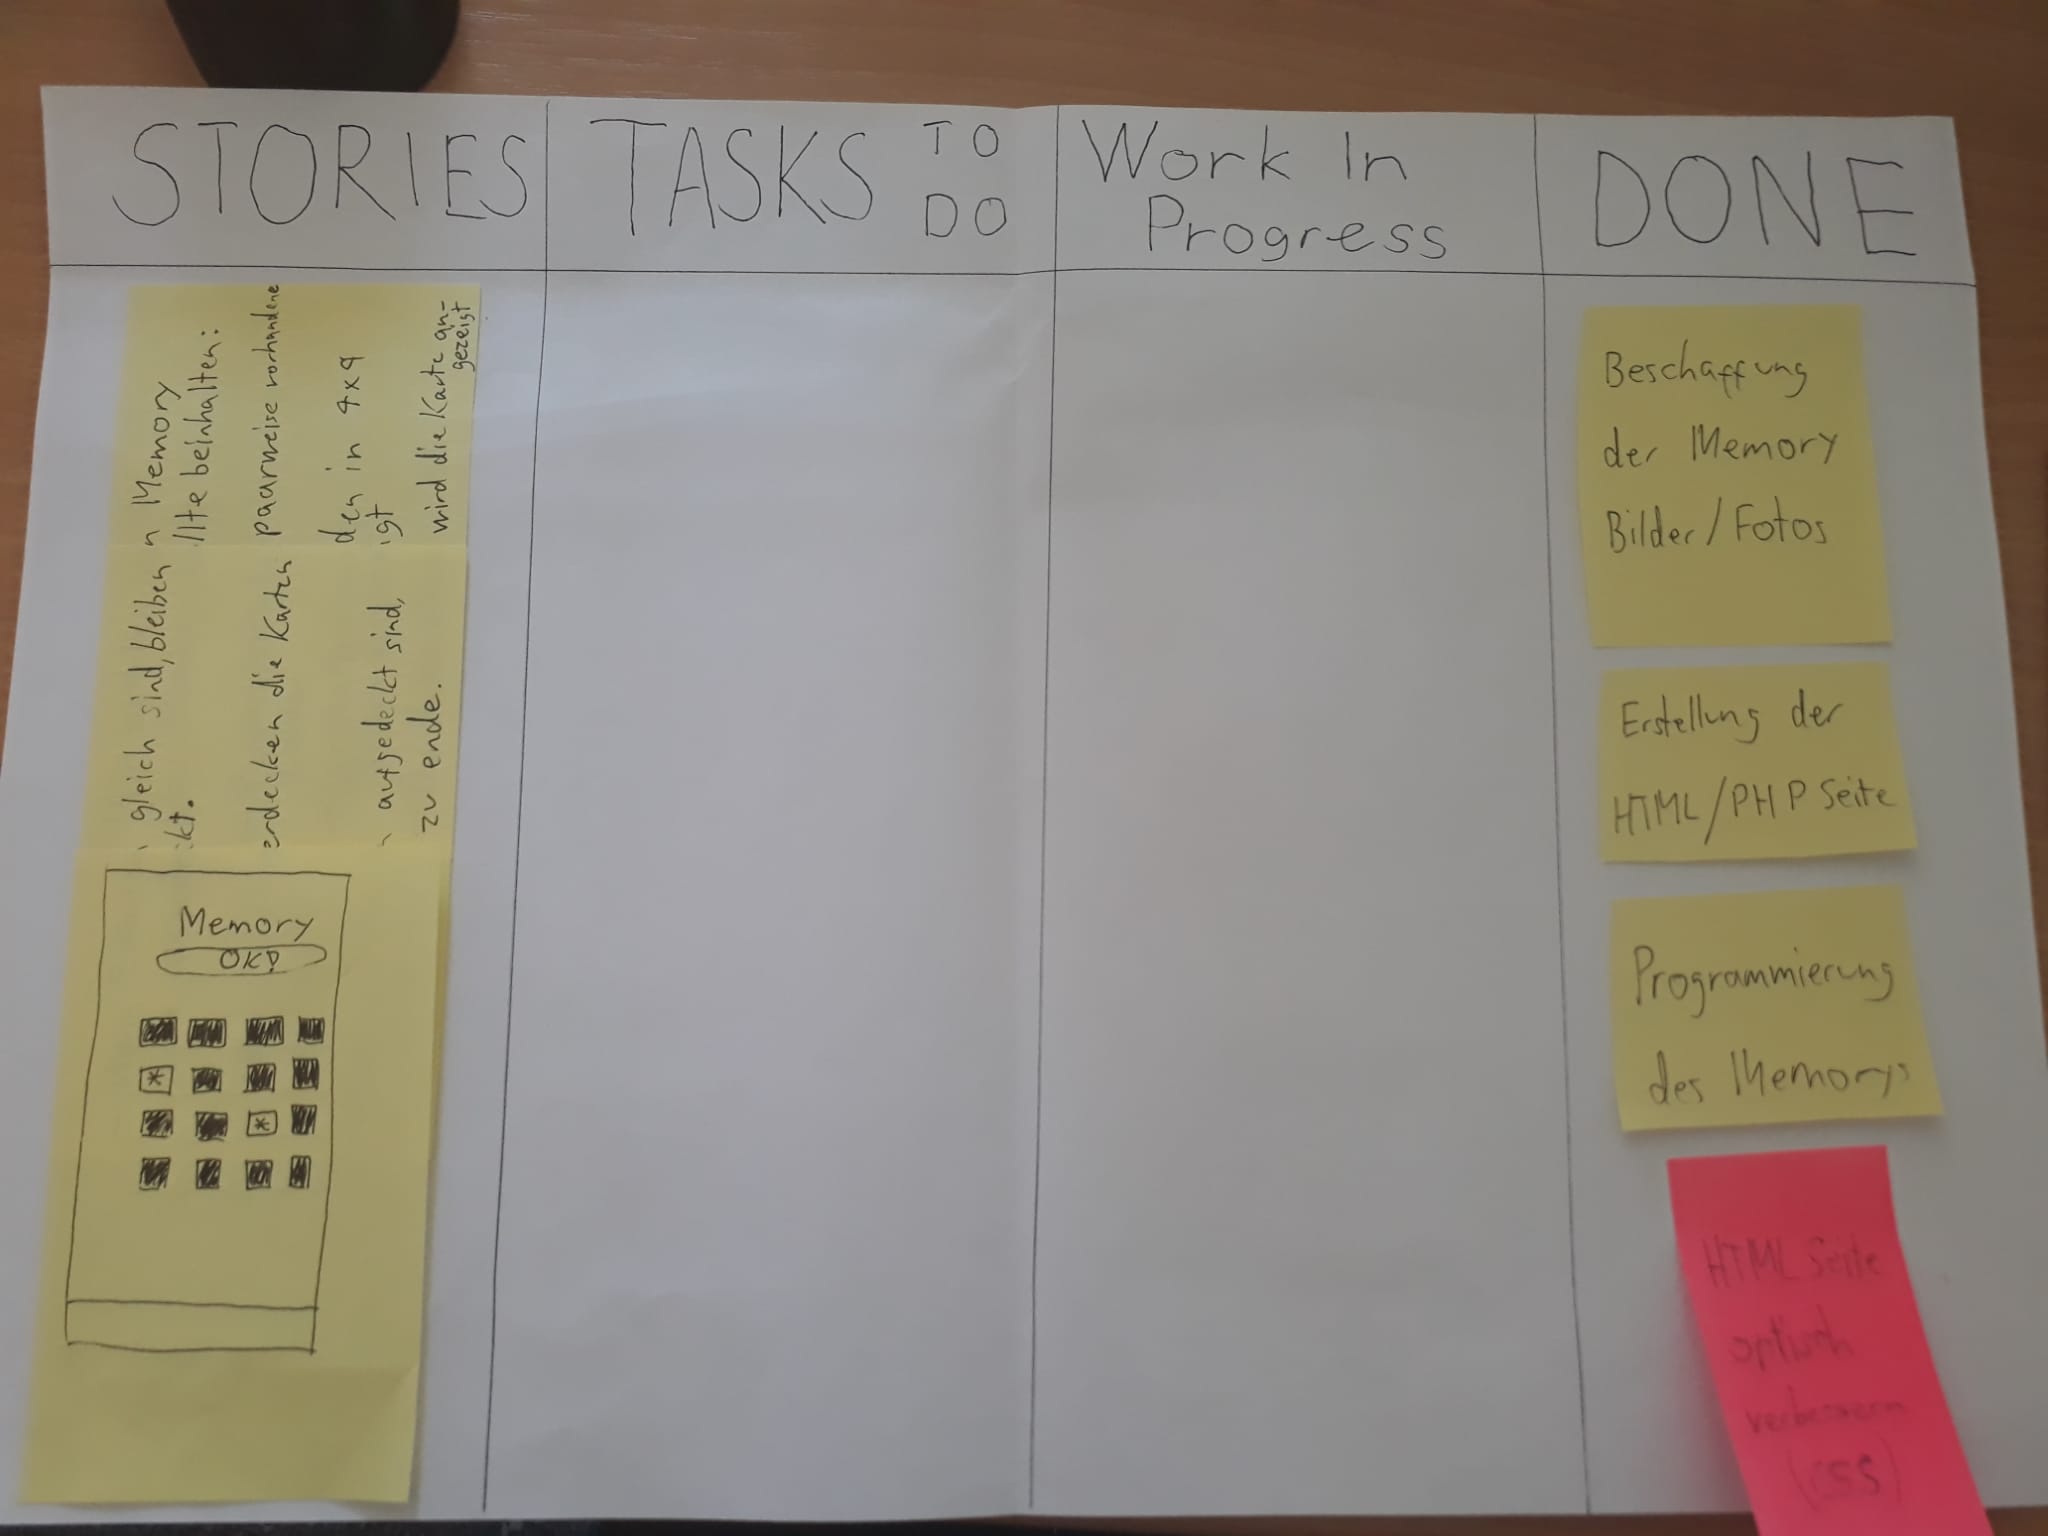 STORIES
TASKS TO DO
Work In
Progress
DONE
n Memory
llte beinhalten:
paarweise vorhandene
den in 4x4
igt
wird die Karte an-
gezeigt
gleich sind, bleiben
ckt.
erdecken die Karten
aufgedeckt sind,
zu ende.
Memory
OK!
Beschaffung
der Memory
Bilder/Fotos
Erstellung der
HTML/PHP Seite
Programmierung
des Memorys
HTML Seite
optisch
verbessern
(CSS)